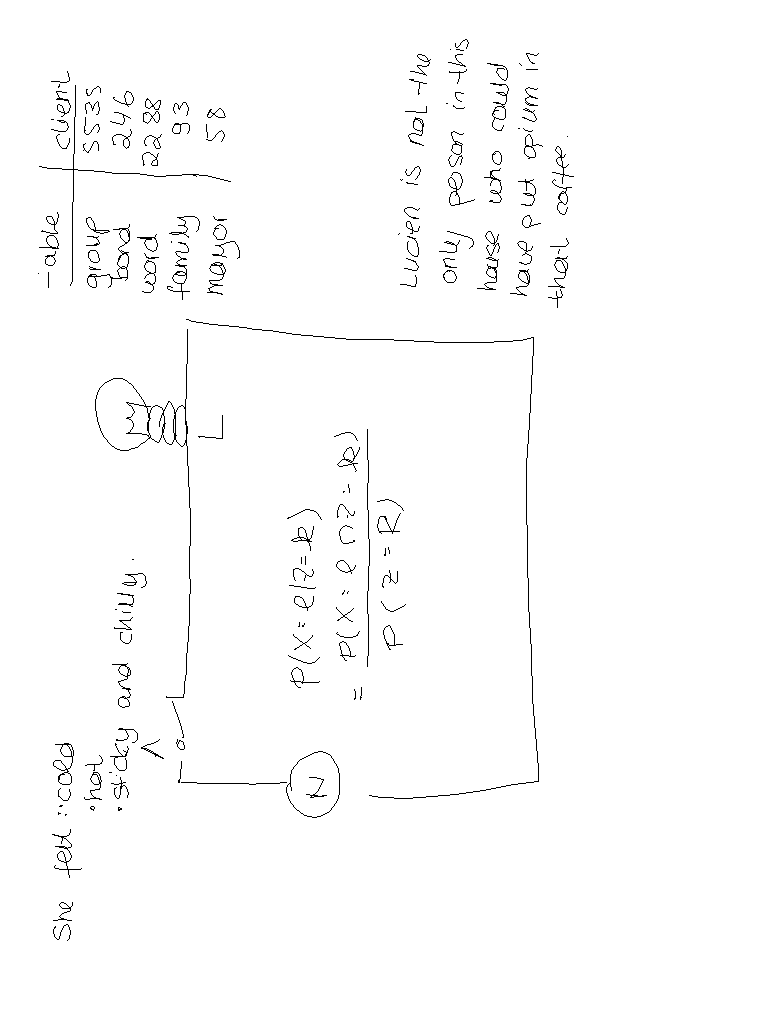 She felt : • cold
• hot
• sticky and chilly.
-able | client
group | 5535
bond | 246
word | 2288
family | 93
mayor | 58
L
P(X=e|Z=k)
= P(X=e∩Z=k)
P(Z=R)
N
Lucien is not the
only person in this
house who could
have put opium in
that coffee.